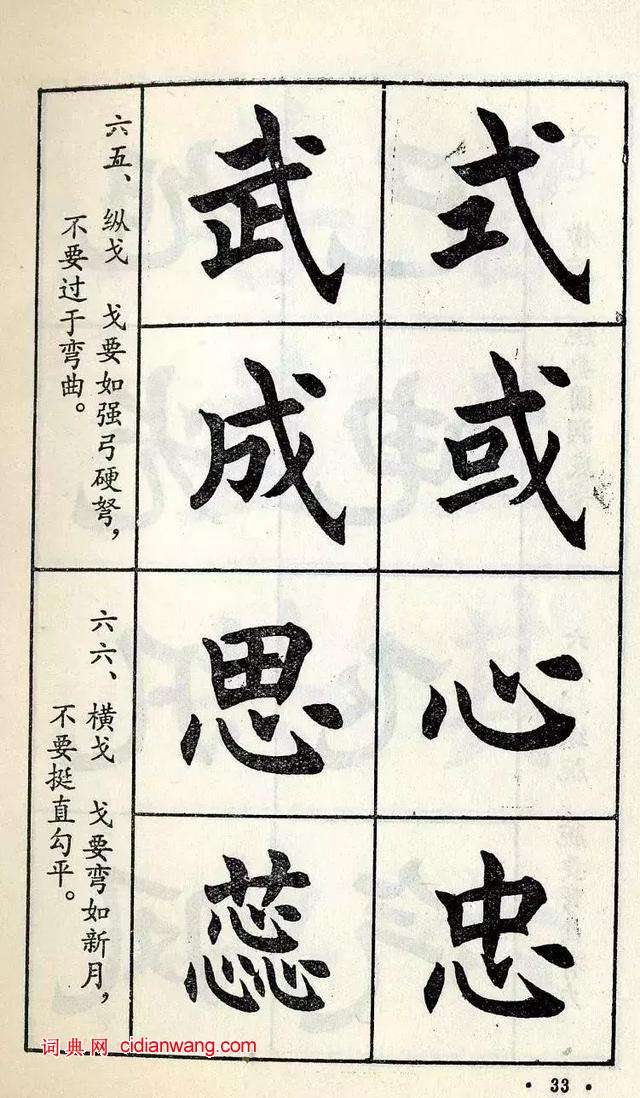 式武
或成
六五、纵戈 戈要如强弓硬弩，
不要过于弯曲。
心思
忠蕊
六六、横戈 戈要弯如新月，
不要挺直勾平。
词典网 cidianwang.com
·33·